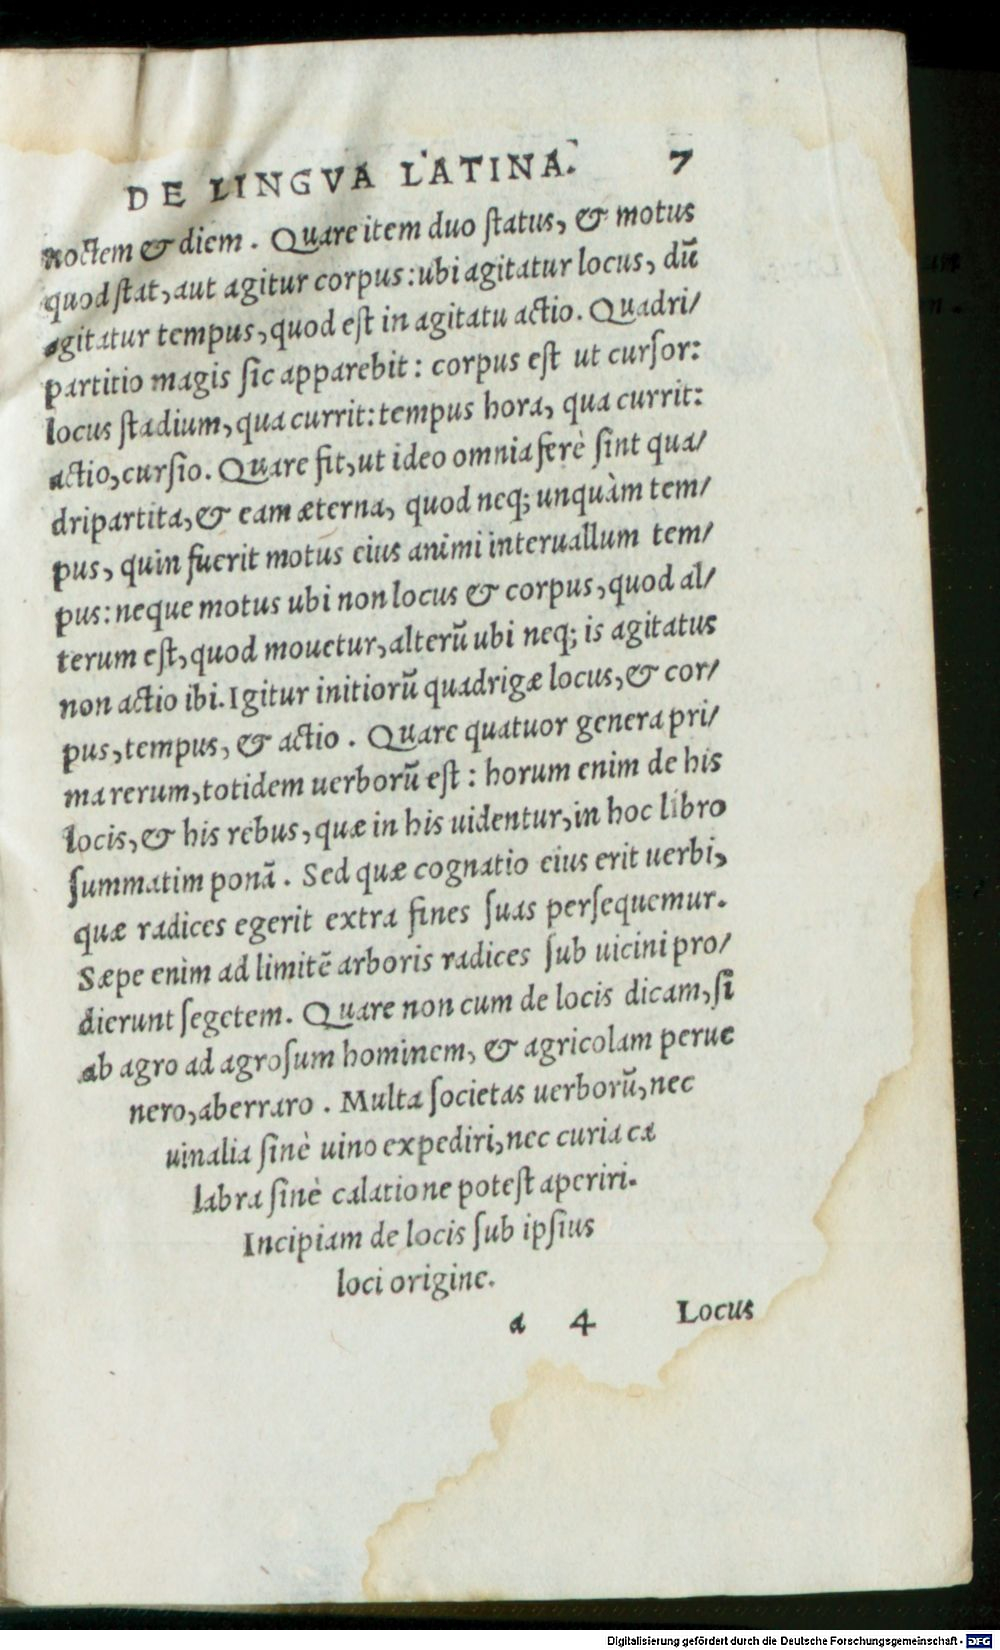 DE LINGVA LATINA. 7
noctem & diem. Quare item duo ſtatus, & motus
quod ſtat, aut agitur corpus: ubi agitatur locus, dū
agitatur tempus, quod eſt in agitatu actio. Quadri/
partitio magis ſic apparebit: corpus eſt ut curſor:
locus ſtadium, qua currit: tempus hora, qua currit:
actio, curſio. Quare fit, ut ideo omnia ferè ſint qua/
dripartita, & eam æterna, quod neq; unquàm tem/
pus, quin fuerit motus eius animi interuallum tem/
pus: neque motus ubi non locus & corpus, quod al/
terum eſt, quod mouetur, alterū ubi neq; is agitatus
non actio ibi. Igitur initiorū quadrigæ locus, & cor/
pus, tempus, & actio. Quare quatuor genera pri/
ma rerum, totidem uerborū est: horum enim de his
locis, & his rebus, quæ in his uidentur, in hoc libro
ſummatim ponā. Sed quæ cognatio eius erit uerbi,
quæ radices egerit extra fines ſuas perſequemur.
Sæpe enim ad limitē arboris radices ſub uicini pro/
dierunt ſegetem. Quare non cum de locis dicam, ſi
ab agro ad agroſum hominem, & agricolam perue
nero, aberraro. Multa ſocietas uerborū, nec
uinalia ſinè uino expediri, nec curia ca
labra ſinè calatione poteſt aperiri.
Incipiam de locis ſub ipſius
loci origine.
a 4 Locus
Digitalisierung gefördert durch die Deutsche Forschungsgemeinschaft - DFG